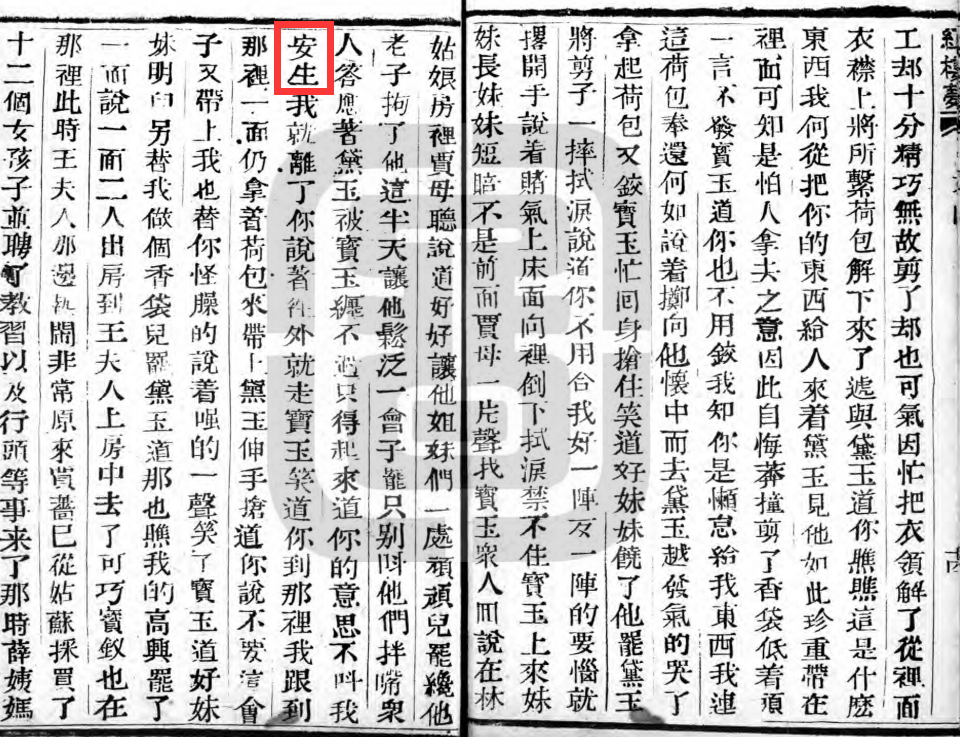 紅樓夢
工却十分精巧無故剪了却也可氣因忙把衣領解了從裡面
衣襟上將所繫荷包解下來了遞與黛玉道你瞧瞧這是什麽
東西我何從把你的東西給人來着黛玉見他如此珍重帶在
裡面可知是怕人拿去之意因此自悔莽撞剪了香袋低着頭
一言不發寶玉道你也不用鉸我知你是懶怠給我東西我連
這荷包奉還何如說着擲向他懷中而去黛玉越發氣的哭了
拿起荷包又鉸寶玉忙回身搶住笑道好妹妹饒了他罷黛玉
將剪子一摔拭淚說道你不用合我好一陣歹一陣的要惱就
撂開手說着賭氣上床面向裡倒下拭淚禁不住寶玉上來妹
妹長妹妹短賠不是前面賈母一片聲找寶玉衆人回說在林
姑娘房裡賈母聽說道好好讓他姐妹們一處頑頑兒罷纔他
老子拘了他這半天讓他鬆泛一會子罷只别呌他們拌嘴衆
人答應著黛玉被寶玉纒不過只得起來道你的意思不呌我
安生我就離了你說著徃外就走寶玉笑道你到那裡我跟到
那裡一面仍拿着荷包來帶上黛玉伸手搶道你說不要這會
子又帶上我也替你怪臊的說着嗤的一聲笑了寶玉道好妹
妹明兒另替我做個香袋兒罷黛玉道那也瞧我的高興罷了
一面說一面二人出房到王夫人上房中去了可巧寶釵也在
那裡此時王夫人那邊熱鬧非常原來賈薔已從姑蘇採買了
十二個女孩子並聘了教習以及行頭等事来了那時薛姨媽